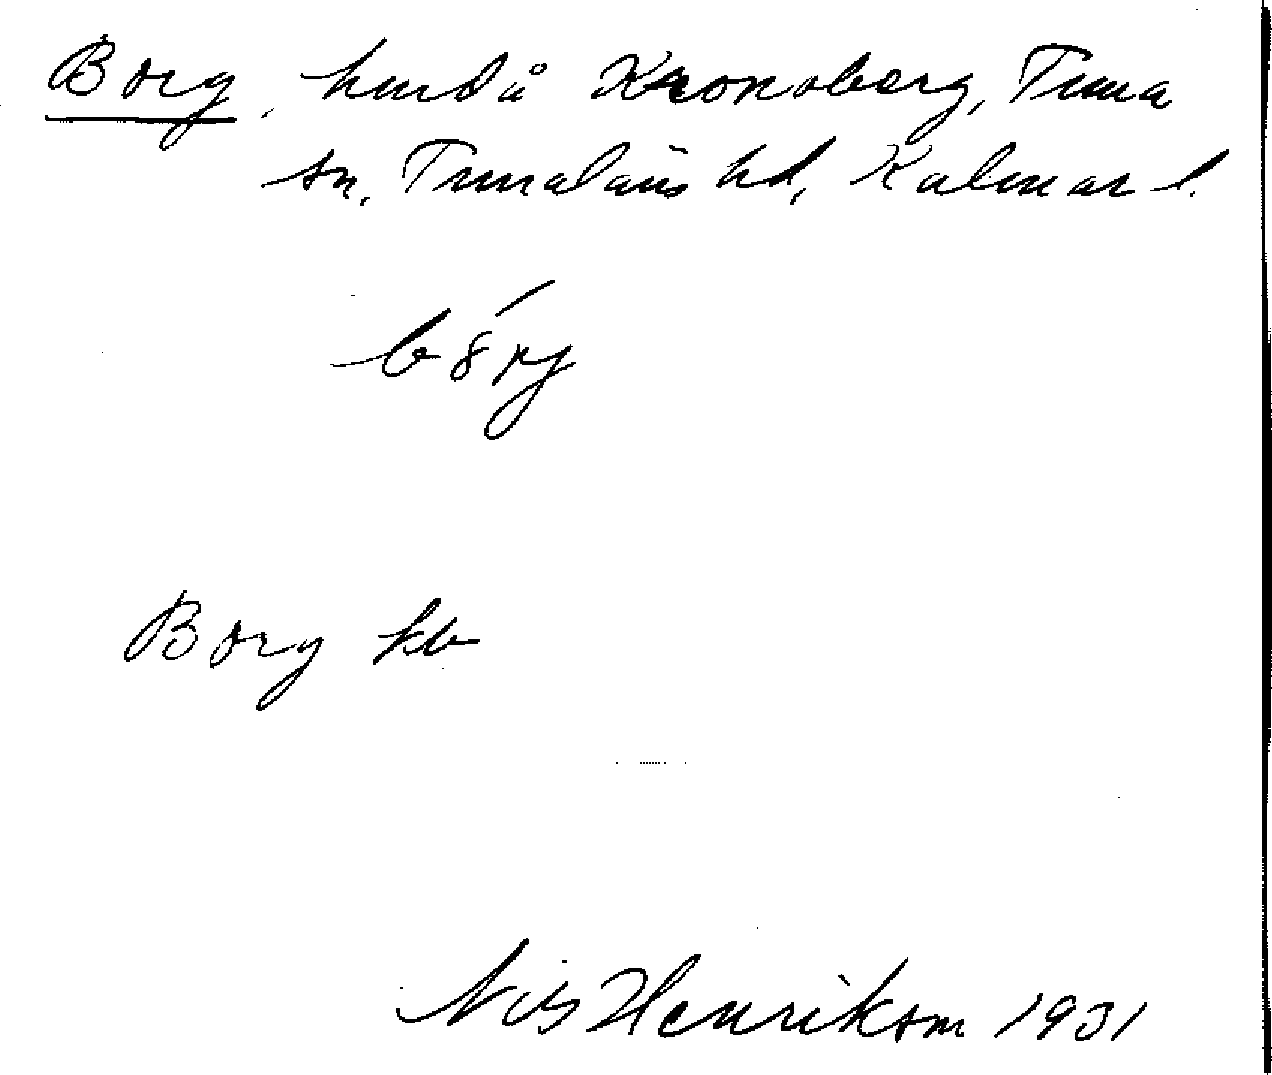 Borg, lund å Kronoberg, Tuna
sn, Tunaläns hd, Kalmar l.
Borg kb
Nils Henrikson 1931